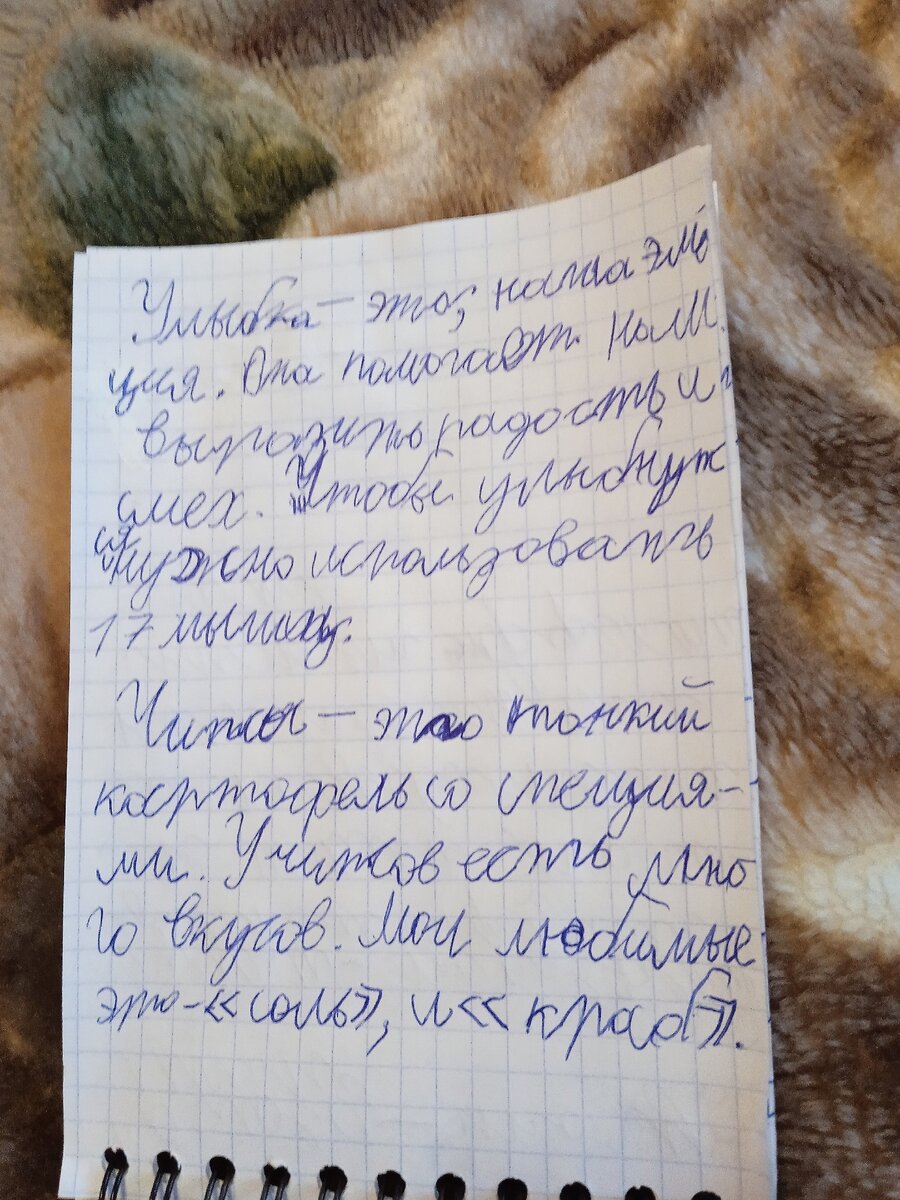 Улыбка – это, наша эмо
ция. Она помогает нам
выразить радость и
смех. Чтобы улыбнуть
ся нужно использовать
17 мышц.
Чипсы – это тонкий
картофель со специя-
ми. У чипсов есть мно
го вкусов. Мои любимые
это - «соль», и «краб».